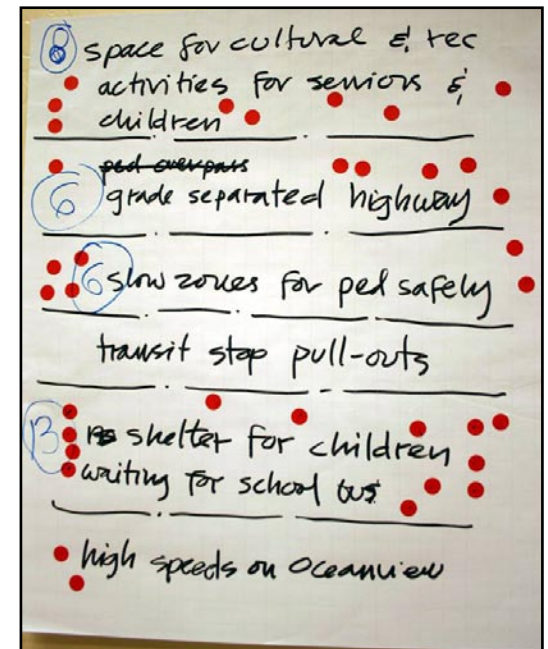 8 space for cultural & rec
activities for seniors &
children
ped overpass
6 grade separated highway
6 slow zones for ped safely
transit stop pull-outs
13 shelter for children
waiting for school bus
high speeds on Oceanview